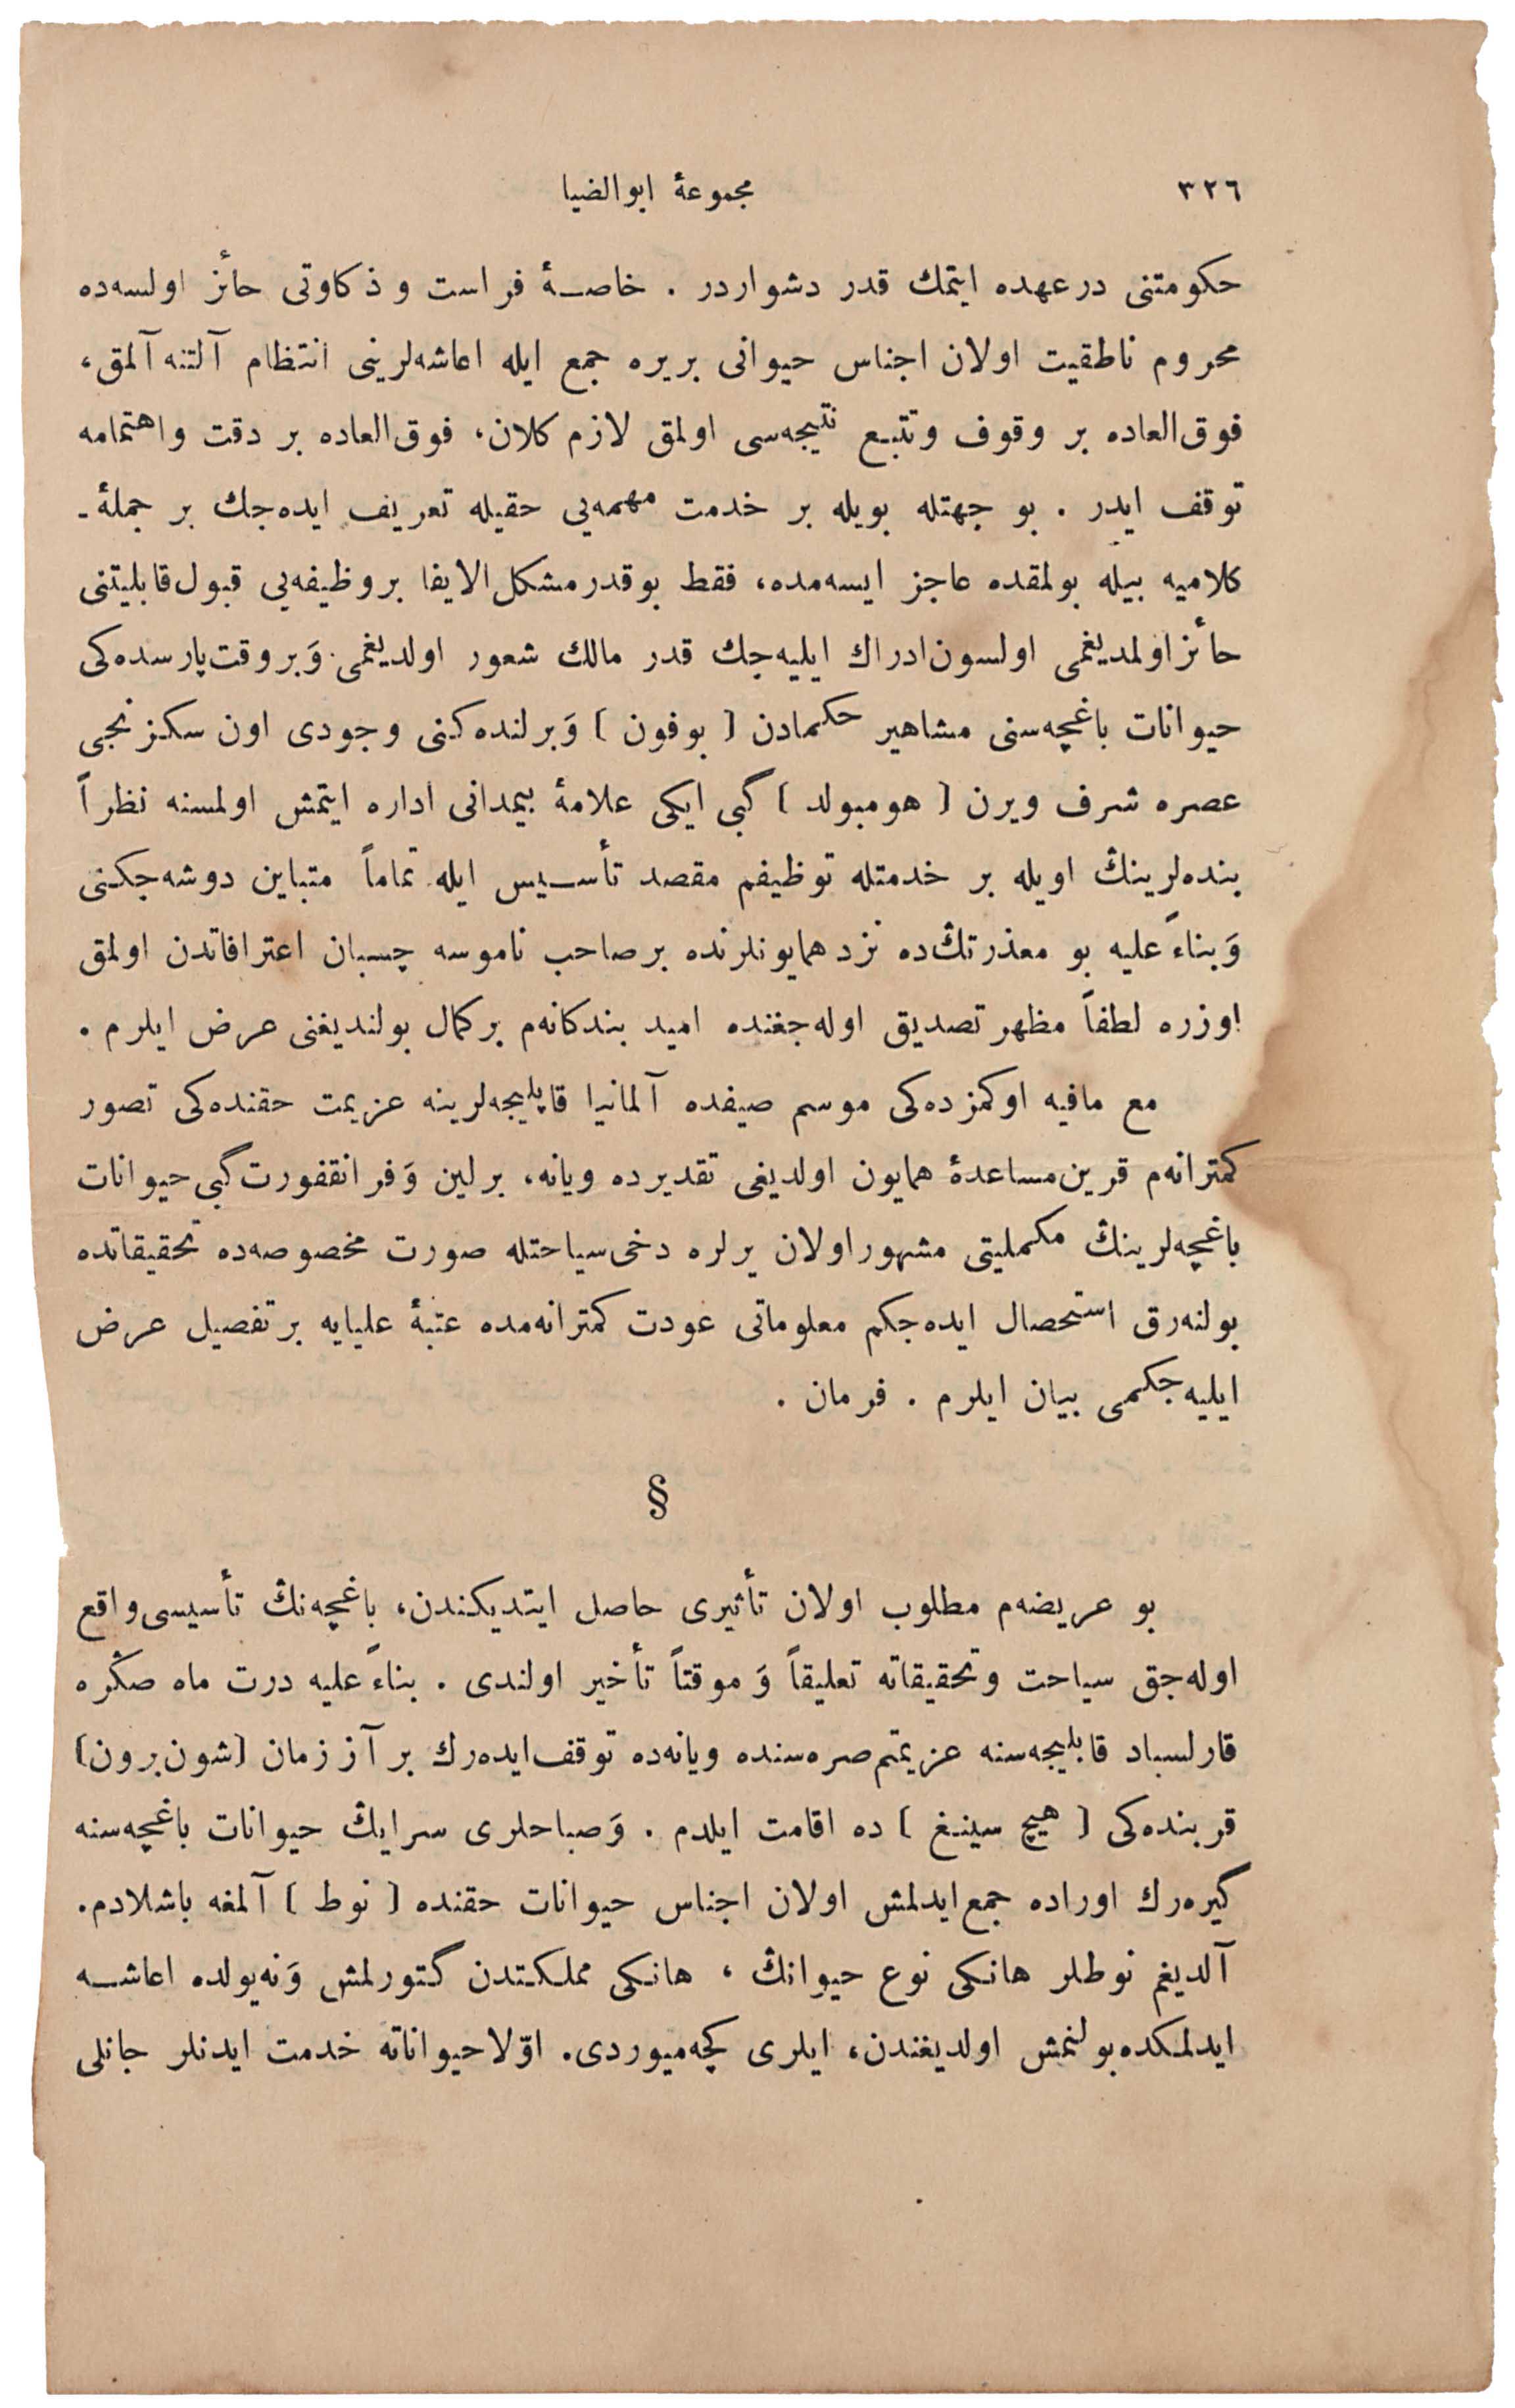 ٣٢٦
مجموعهٔ ابوالضيا
حكومتنى درعهده ايتمك قدر دشواردر . خاصهٔ فراست و ذكاوتى حائز اولسه‌ده
محروم ناطقيت اولان اجناس حيوانى بريره جمع ايله اعاشه‌لرينى انتظام آلتنه آلمق،
فوق‌العاده بر وقوف وتتبع نتيجه‌سى اولمق لازم كلان، فوق‌العاده بر دقت واهتمامه
توقف ايدر . بو جهتله بويله بر خدمت مهمه‌يى حقيله تعريف ايده‌جك بر جملهٔ ـ
كلاميه بيله بولمقده عاجز ايسه‌مده، فقط بوقدر مشكل الايفا بروظيفه‌يى قبول قابليتنى
حائز اولمديغمى اولسون ادراك ايليه‌جك قدر مالك شعور اولديغمى. وَبروقت پارسده‌كى
حيوانات باغچه‌سنى مشاهير حكمادن [ بوفون ] وَبرلنده‌كنى وجودى اون سكزنجى
عصره شرف ويرن [ هومبولد ] گبى ايكى علامهٔ بيمدانى اداره ايتمش اولمسنه نظراً
بنده‌لرينڭ اويله بر خدمتله توظيفم مقصد تأسيس ايله تماماً متباين دوشه‌جكنى
وَبناءً عليه بو معذرتڭ‌ده نزد همايونلرنده برصاحب ناموسه چسبان اعترافاتدن اولمق
اوزره لطفاً مظهر تصديق اوله‌جغنده اميد بندكانه‌م بركمال بولنديغنى عرض ايلرم .
مع مافيه اوكمزده‌كى موسم صيفده آلمانيا قاپليجه‌لرينه عزيمت حقنده‌كى تصور
كمترانه‌م قرين مساعدهٔ همايون اولديغى تقديرده ويانه، برلين وَفرانقفورت گبى حيوانات
باغچه‌لرينڭ مكمليتى مشهور اولان يرلره دخى سياحتله صورت مخصوصه‌ده تحقيقاتده
بولنه‌رق استحصال ايده‌جكم معلوماتى عودت كمترانه‌مده عتبهٔ عليايه برتفصيل عرض
ايليه‌جكمى بيان ايلرم . فرمان .
§
بو عريضه‌م مطلوب اولان تأثيرى حاصل ايتديكندن، باغچه‌نڭ تأسيسى واقع
اوله‌جق سياحت وتحقيقاته تعليقاً وَ موقتاً تأخير اولندى . بناءً عليه درت ماه صڭره
قارلسباد قابليجه‌سنه عزيمتم صره‌سنده ويانه‌ده توقف ايده‌رك بر آز زمان [شون برون]
قربنده‌كى [ هيچ سينغ ] ده اقامت ايلدم . وَصباحلرى سرايڭ حيوانات باغچه‌سنه
گيره‌رك اوراده جمع ايدلمش اولان اجناس حيوانات حقنده [ نوط ] آلمغه باشلادم.
آلديغم نوطلر هانكى نوع حيوانڭ ، هانكى مملكتدن گتورلمش وَنه‌يولده اعاشه
ايدلمكده بولنمش اولديغندن، ايلرى كچه‌ميوردى. اوّلا حيواناته خدمت ايدنلر جانلى